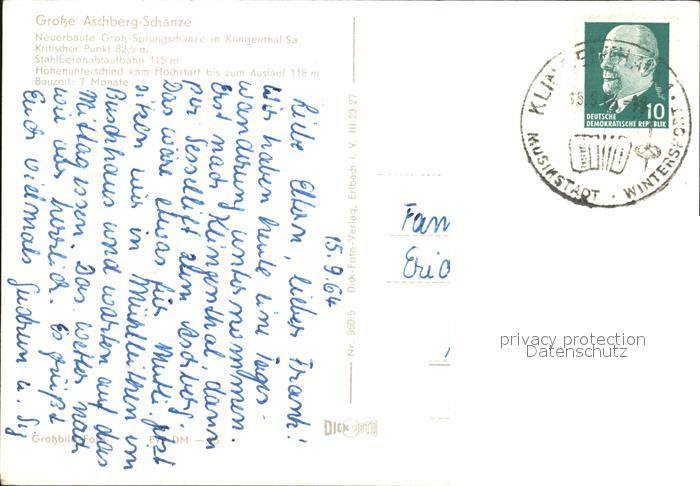 Große Aschberg-Schanze
Neuerbaute Groß-Sprungschanze in Klingenthal/Sa
Kritischer Punkt 82,5 m
Stahlbetonablaufbahn 115 m
Höhenunterschied vom Hochstart bis zum Auslauf 118 m
Bauzeit: 7 Monate
15.9.64
Liebe Eltern, lieber Frank!
Wir haben heute eine Tages-
wanderung unternommen.
Erst nach Klingenthal, dann
per Sessellift zum Aschberg.
Das wäre etwas für Mutti. Jetzt
sitzen wir in Mühlleithen im
Buschhaus und warten auf das
Mittagessen. Das Wetter nach
wie vor herrlich. Es grüßt
Euch vielmals Gudrun u. Sig
Nr. 960/5 Dick-Foto-Verlag, Erlbach i. V. III 23 27
DICK FOTO
Großbild-Foto
DM
Fam
Eric
DEUTSCHE
DEMOKRATISCHE REPUBLIK
10
KLINGENTHAL
MUSIKSTADT · WINTERSPORT
privacy protection
Datenschutz